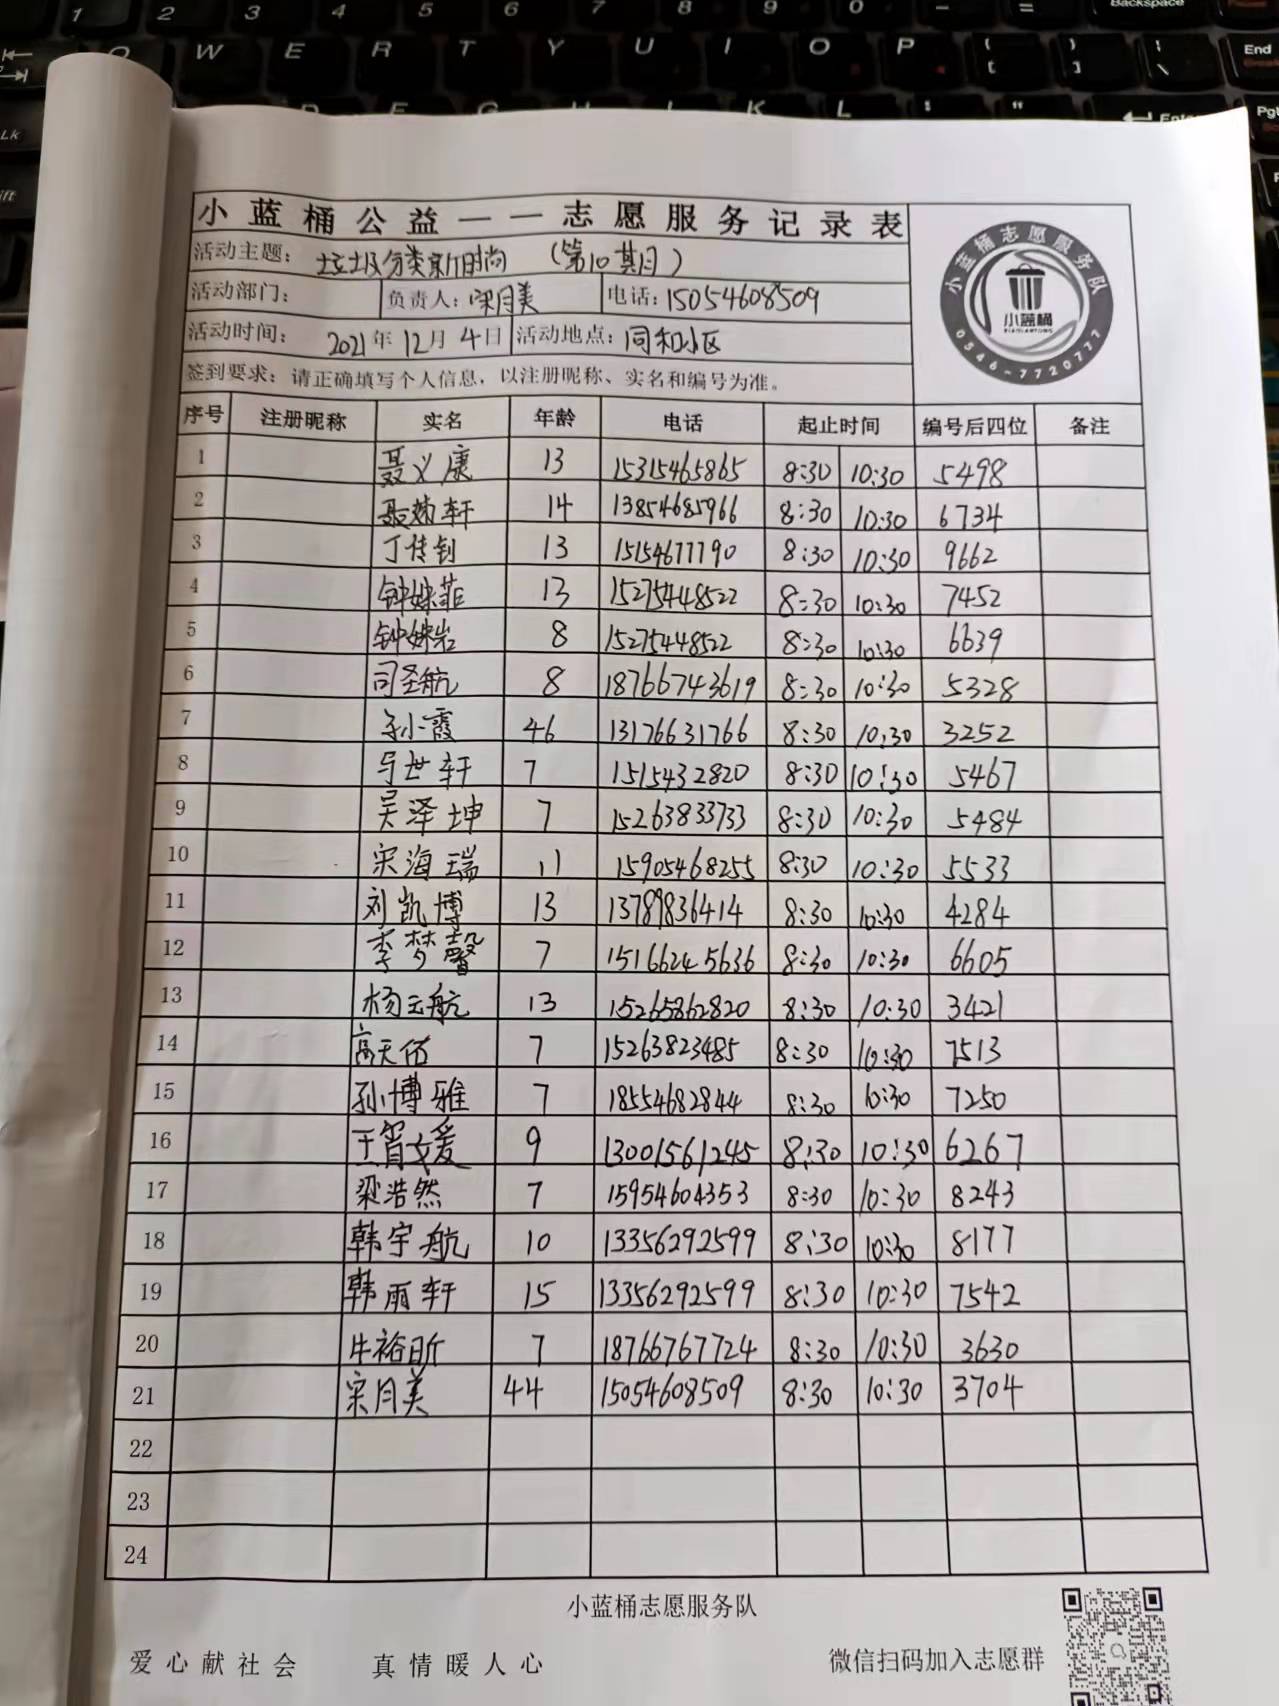 小蓝桶公益——志愿服务记录表
活动主题: 垃圾分类新时尚 (第10期)
活动部门: 负责人: 宋月美 电话: 15054608509
活动时间: 2021年12月4日 活动地点: 同和小区
签到要求: 请正确填写个人信息,以注册昵称、实名和编号为准。
小蓝桶志愿服务队
小蓝桶
XIAOLANTONG
0546-7720777
序号 注册昵称 实名 年龄 电话 起止时间 编号后四位 备注
1 聂义康 13 15315465865 8:30 10:30 5498
2 14 13854685966 8:30 10:30 6734
3 丁传钊 13 15154677790 8:30 10:30 9662
4 钟姝菲 13 15275448522 8:30 10:30 7452
5 钟姝岩 8 15275448522 8:30 10:30 6639
6 司圣航 8 18766743619 8:30 10:30 5328
7 李小霞 46 13176631766 8:30 10:30 3252
8 世轩 7 1515432820 8:30 10:30 5467
9 吴泽坤 7 15263833733 8:30 10:30 5484
10 宋海瑞 11 15905468255 8:30 10:30 5533
11 刘凯博 13 13789836414 8:30 10:30 4284
12 李梦馨 7 15166245636 8:30 10:30 6605
13 杨云航 13 15265862820 8:30 10:30 3421
14 高天佑 7 15263823485 8:30 10:30 7513
15 孙博雅 7 18554682844 8:30 10:30 7250
16 王媛 9 13001561245 8:30 10:30 6267
17 梁浩然 7 15954604353 8:30 10:30 8243
18 韩宇航 10 13356292599 8:30 10:30 8177
19 韩雨轩 15 13356292599 8:30 10:30 7542
20 牛裕昕 7 18766767724 8:30 10:30 3630
21 宋月美 44 15054608509 8:30 10:30 3704
22
23
24
小蓝桶志愿服务队
爱心献社会 真情暖人心 微信扫码加入志愿群